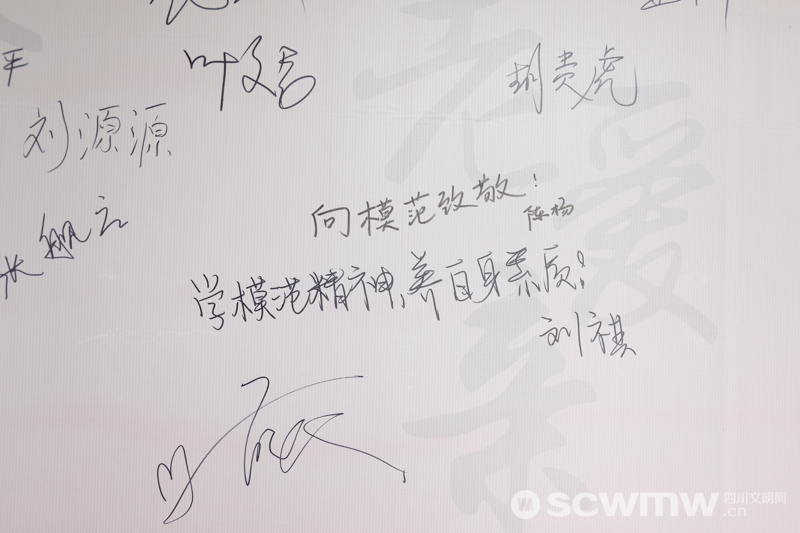 平
叶文君
胡贵虎
刘源源
向模范致敬！
陈杨
学模范精神，养自身素质！
刘祺
scwmw 四川文明网
.cn